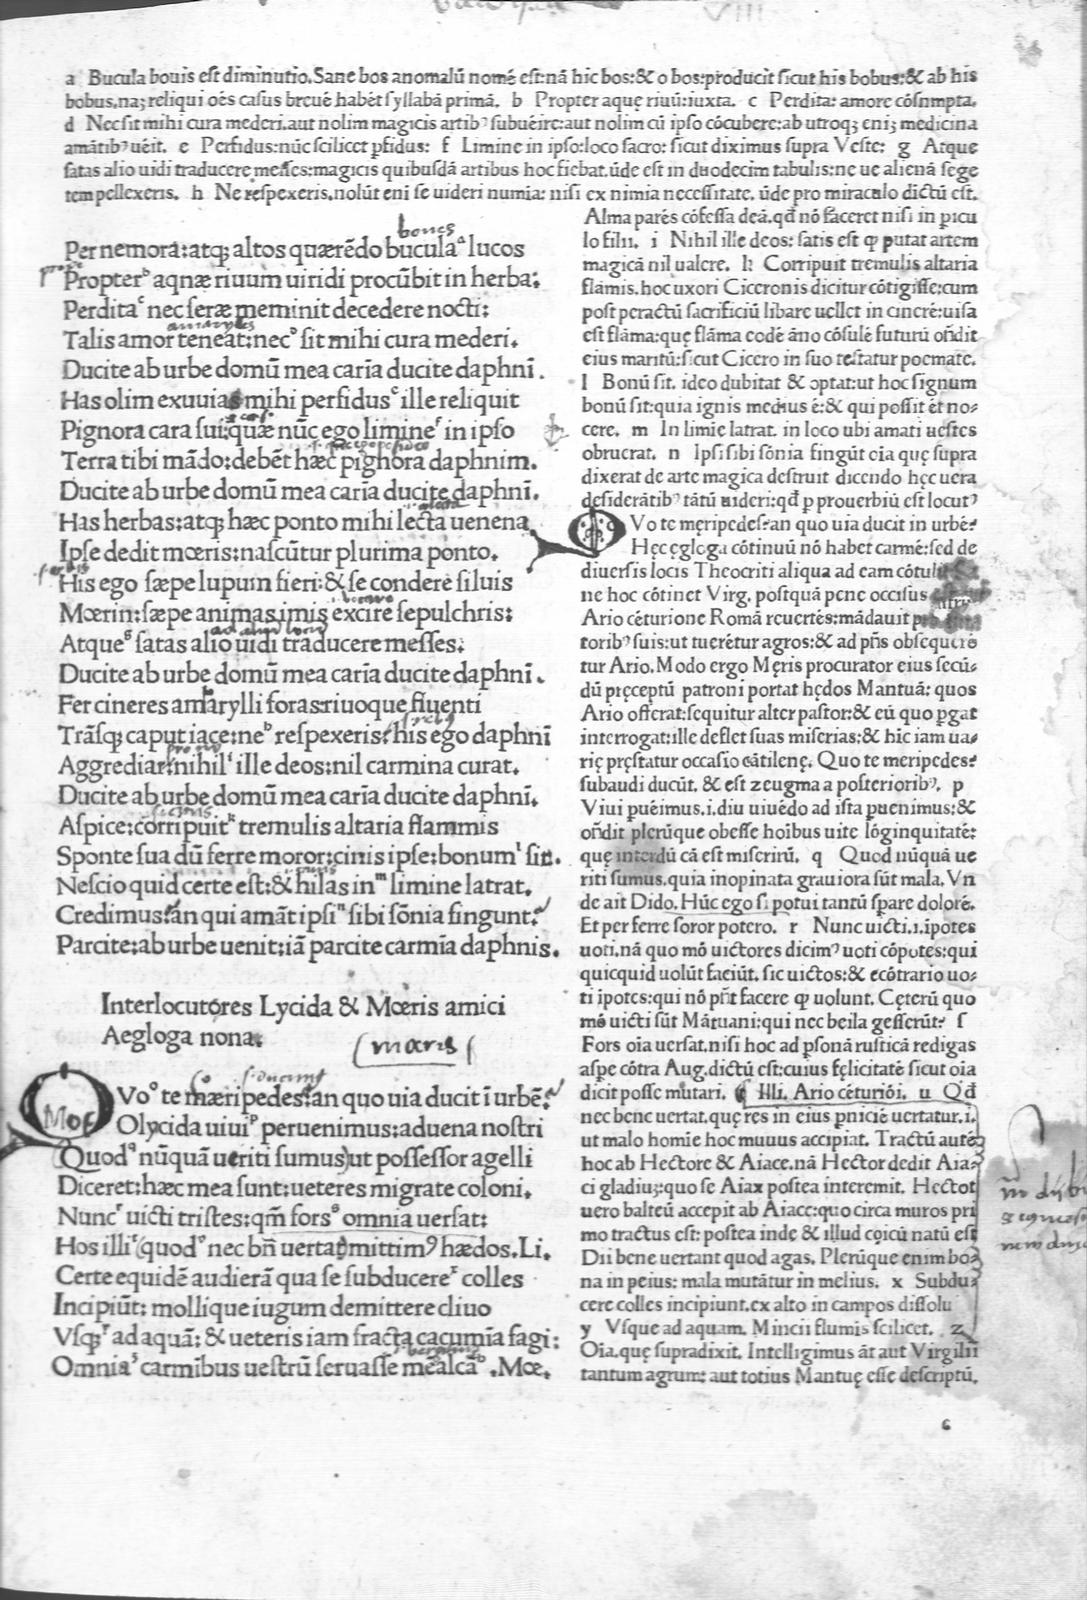 VIII
a Bucula bouis est diminutio. Sane bos anomalū nomē est: nā hic bos: & o bos: producit sicut his bobus: & ab his
bobus. naʒ reliqui oēs casus breuē habēt syllabā primā. b Propter aquę riuū: iuxta. c Perdita: amore cōsnmpta.
d Nec sit mihi cura mederi. aut nolim magicis artibꝰ subuēire: aut nolim cū ipso cōcubere: ab utroqꝫ eniʒ medicina
amātibꝰ uēit. e Perfidus: nūc scilicet ꝑfidus: f Limine in ipso: loco sacro: sicut diximus supra Veste: g Atque
satas alio uidi traducere messes: magicis quibusdā artibus hoc fiebat. ūde est in duodecim tabulis: ne ue alienā sege
tem pellexeris. h Ne respexeris. nolūt eni se uideri numia: nisi ex nimia necessitate. ūde pro miraculo dictū est.
boues
Per nemora: atqꝫ altos quærēdo bucula a lucos
Propter b aqnæ riuum uiridi procūbit in herba:
Perdita c nec seræ meminit decedere nocti:
amaryles
Talis amor teneat: nec d sit mihi cura mederi.
Ducite ab urbe domū mea carīa ducite daphnī.
Has olim exuuias mihi perfidus e ille reliquit
Pignora cara sui: quæ nūc ego limine f in ipso
Terra tibi mādo: debēt hæc pignora daphnim.
Ducite ab urbe domū mea carīa ducite daphnī.
Has herbas: atqꝫ hæc ponto mihi lecta uenena
Ipse dedit mœris: nascūtur plurima ponto.
His ego sæpe lupum fieri: & se condere siluis
Mœrin: sæpe animas imis excire sepulchris:
Atque g satas alio uidi traducere messes:
Ducite ab urbe domū mea carīa ducite daphnī.
Fer cineres amarylli foras: riuoque fluenti
Trāsqꝫ caput iace: ne h respexeris: his ego daphnī
Aggrediar: nihil i ille deos: nil carmina curat.
Ducite ab urbe domū mea carīa ducite daphnī.
Aspice: corripuit k tremulis altaria flammis
Sponte sua dū ferre moror: cinis ipse: bonum l sit.
Nescio quid certe est: & hilas in m limine latrat.
Credimus: an qui amāt ipsi n sibi sōnia fingunt:
Parcite: ab urbe uenit: iā parcite carmīa daphnis.
Interlocutores Lycida & Mœris amici
Aegloga nona:
mœris
QVo o te mæri pedes: an quo uia ducit ī urbē:
Moe
O lycida uiui p peruenimus: aduena nostri
Quod q nūquā ueriti sumus) ut possessor agelli
Diceret: hæc mea sunt: ueteres migrate coloni.
Nunc r uicti tristes: qm̄ fors s omnia uersat:
Hos illi t (quod u nec bn̄ uertat) mittimꝰ hædos. Li.
Certe equidē audierā qua se subducere x colles
Incipiūt: mollique iugum demittere cliuo
Vsqꝫ y ad aquā: & ueteris iam fracta cacumīa fagi:
Omnia z carmībus uestrū seruasse mēalcā. Mœ.
Alma parēs cōfessa deā. qđ nō faceret nisi in ꝑicu
lo filii. i Nihil ille deos: satis est ꝙ putat artem
magicā nil ualere. k Corripuit tremulis altaria
flāmis. hoc uxori Ciceronis dicitur cōtigisse: cum
post peractū sacrificiū libare uellet in cinerē: uisa
est flāma: quę flāma eodē āno cōsulē futurū oñdit
eius maritū: sicut Cicero in suo testatur poemate.
l Bonū sit. ideo dubitat & optat: ut hoc signum
bonū sit: quia ignis medius ē: & qui possit et no-
cere. m In limīe latrat. in loco ubi amati uestes
obruerat. n Ipsi sibi sōnia fingūt eia quę supra
dixerat de arte magica destruit dicendo hęc uera
desiderātibꝰ tātū uideri: qđ ꝑ prouerbiū est locutꝰ
QVo te męri pedes: an quo uia ducit in urbē:
Hęc ęgloga cōtinuū nō habet carmē: sed de
diuersis locis Theocriti aliqua ad eam cōtulit
ne hoc cōtinet Virg. postquā pene occisus
Ario cēturione Romā reuertēs: mādauit
toribꝰ suis: ut tuerētur agros: & ad pñs obsequerē
tur Ario. Modo ergo Męris procurator eius secū-
dū pręceptū patroni portat hędos Mantuā: quos
Ario offerat: sequitur alter pastor: & eū quo pgat
interrogat: ille deflet suas miserias: & hic iam ua-
rię pręstatur occasio cātilenę. Quo te meri pedes:
subaudi ducūt. & est zeugma a posterioribꝰ. p
Viui puēimus. i. diu uiuēdo ad ista puenimus: &
oñdit plerūque obesse hoībus uite lōginquitatē:
quę interdū cā est miseriarū. q Quod nūquā ue
riti sumus. quia inopinata grauiora sūt mala. Vn
de ait Dido. Hūc ego si potui tantū sperare dolorē.
Et perferre soror potero. r Nunc uicti. i. ipotes
uoti. nā quo mō uictores dicimꝰ uoti cōpotes: qui
quicquid uolūt faciūt. sic uictos: & ecōtrario uo-
ti ipotes: qui nō pñt facere ꝙ uolunt. Cęterū quo
mō uicti sūt Mātuani: qui nec bella gesserūt: s
Fors oīa uersat. nisi hoc ad ꝑsonā rusticā redigas
aspe cōtra Aug. dictū est: cuius fęlicitatē sicut oīa
dicit posse mutari. t Illi. Ario cēturiōi. u Qđ
nec bene uertat. quę res in eius ꝑniciē uertatur. i.
ut malo homīe hoc munus accipiat. Tractū autē
hoc ab Hectore & Aiace. nā Hector dedit Aia-
ci gladiuʒ: quo se Aiax postea interemit. Hector
uero balteū accepit ab Aiace: quo circa muros pri
mo tractus est: postea inde & illud cōicū natū est
Dii bene uertant quod agas. Plerūque enim bo-
na in peius: mala mutātur in melius. x Subdu
cere colles incipiunt. ex alto in campos dissolui
y Vsque ad aquam. Mincii flumis scilicet. z
Oīa. quę supradixit. Intelligimus āt aut Virgilii
tantum agrum: aut totius Mantuę esse descriptū.
c